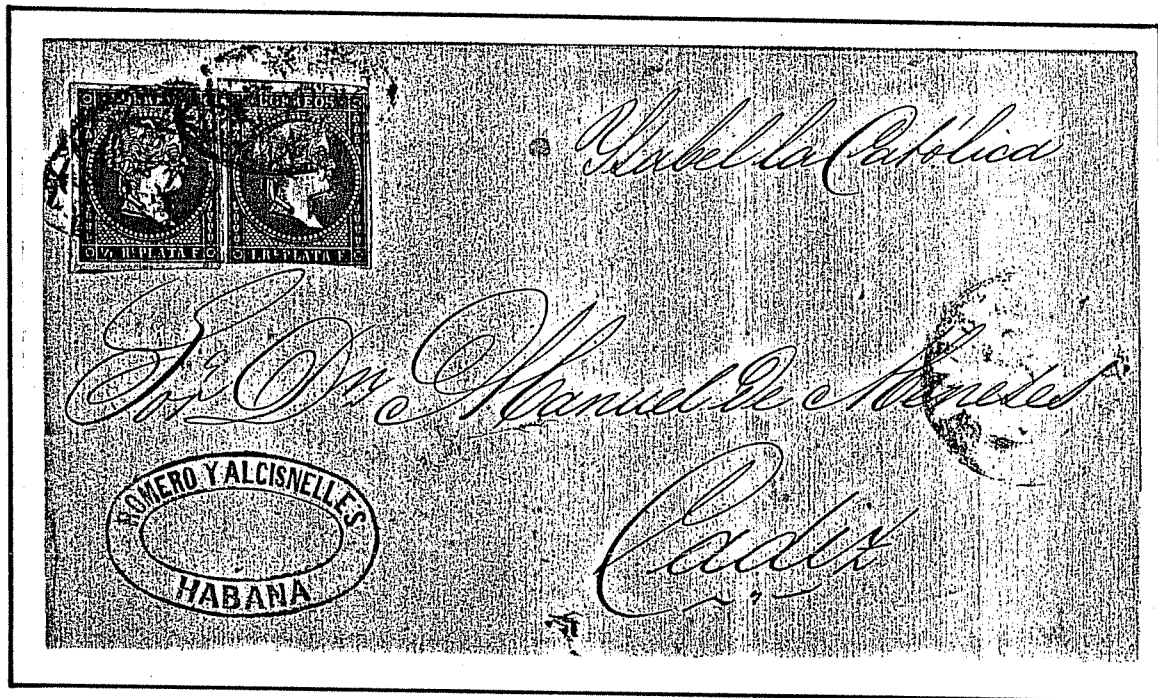 CORREOS
½ Rl. PLATA F. 1 Rl. PLATA F.
Ysabel la Católica
Sor. Dn. Manuel de Meneses
Cadiz
ROMERO Y ALCISNELLES
HABANA